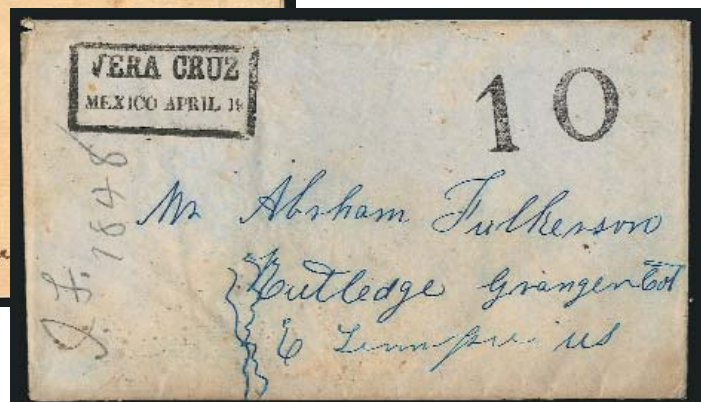 VERA CRUZ
MEXICO APRIL 19
10
I. F. 1848
Mr Abrham Fulkerson
Rutledge Granger Cot
E Tennessee US